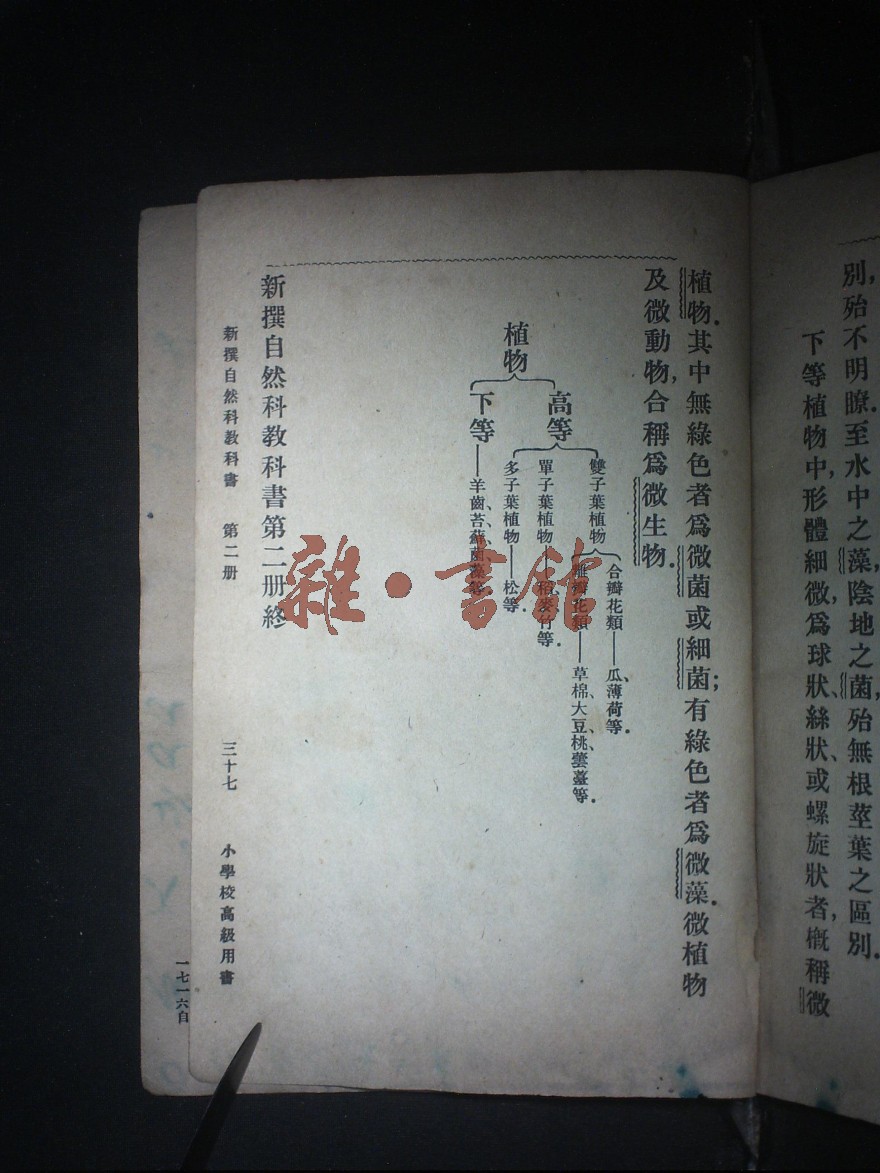 別,殆不明瞭.至水中之藻,陰地之菌,殆無根莖葉之區別.
下等植物中,形體細微,爲球狀、絲狀、或螺旋狀者,概稱微
植物.其中無綠色者爲微菌或細菌;有綠色者爲微藻.微植物
及微動物,合稱爲微生物.
植物
高等
雙子葉植物
合瓣花類——瓜、薄荷等.
離瓣花類——草棉、大豆、桃、蕓薹等.
單子葉植物——稻、麥、竹等.
多子葉植物——松等.
下等——羊齒、苔蘚、菌、藻等.
新撰自然科教科書第二册終
新撰自然科教科書 第二册 三十七 小學校高級用書
一七一六自
雜·書館